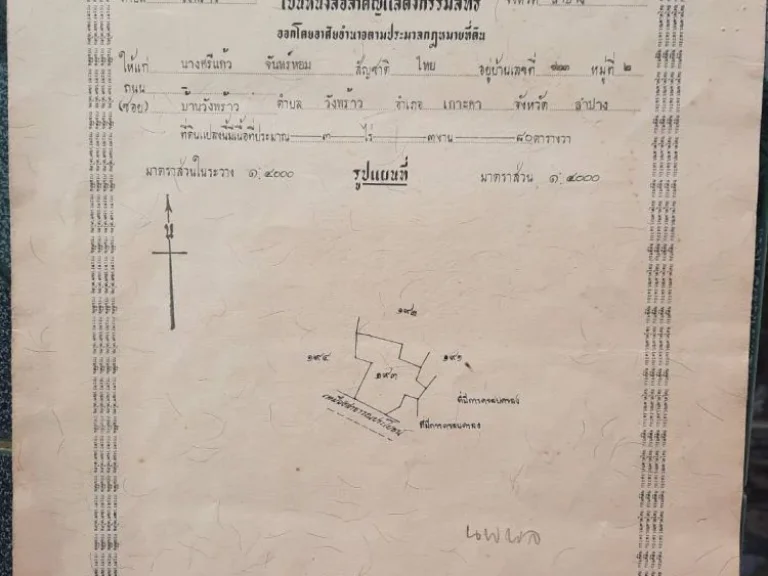 เป็นหนังสือสำคัญแสดงกรรมสิทธิ์
ออกโดยอาศัยอำนาจตามประมวลกฎหมายที่ดิน
ให้แก่ นางศรีแก้ว จันทร์หอม สัญชาติ ไทย อยู่บ้านเลขที่ ๑๒๓ หมู่ที่ ๒
ถนน
(ซอย) บ้านวังพร้าว ตำบล วังพร้าว อำเภอ เกาะคา จังหวัด ลำปาง
ที่ดินแปลงนี้มีเนื้อที่ประมาณ ๓ ไร่ ๓ งาน ๘๐ ตารางวา
มาตราส่วนในระวาง ๑:๔๐๐๐ รูปแผนที่ มาตราส่วน ๑:๔๐๐๐
น
๑๙๒
๑๙๔ ๑๙๓ ๑๙๑
ที่มีการครอบครอง
เหมืองสาธารณประโยชน์
ที่มีการครอบครอง
นพพล